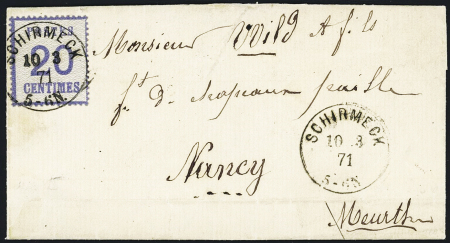 POSTES
20
CENTIMES
SCHIRMECK
10 3
71
5-6N.
Monsieur Wild & fils
ft. de chapeaux paille
Nancy
Meurthe
SCHIRMECK
10 3
71
5-6N.